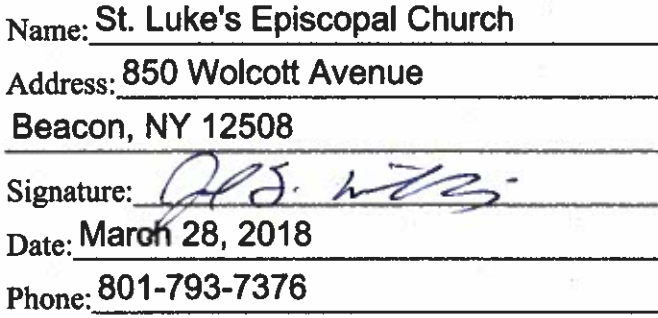 Name: St. Luke's Episcopal Church
Address: 850 Wolcott Avenue
Beacon, NY 12508
Signature:
Date: March 28, 2018
Phone: 801-793-7376